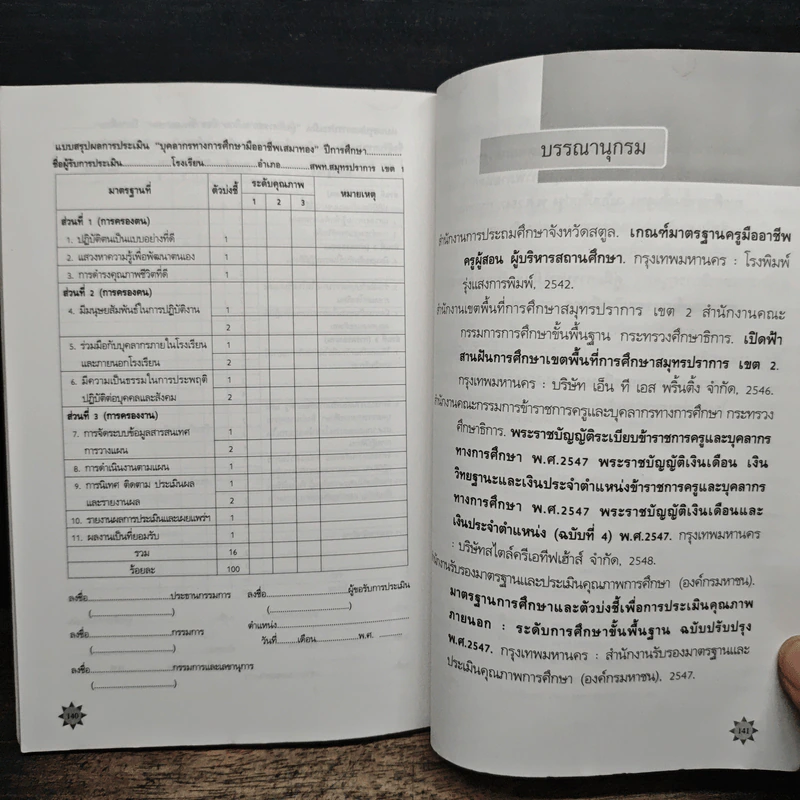 แบบสรุปผลการประเมิน "บุคลากรทางการศึกษามืออาชีพเสมาทอง" ปีการศึกษา............
ชื่อผู้รับการประเมิน................โรงเรียน................อำเภอ.........สพท.สมุทรปราการ เขต 1
มาตรฐานที่ ตัวบ่งชี้ ระดับคุณภาพ หมายเหตุ
1 2 3
ส่วนที่ 1 (การครองตน)
1. ปฏิบัติตนเป็นแบบอย่างที่ดี 1
2. แสวงหาความรู้เพื่อพัฒนาตนเอง 1
3. การดำรงคุณภาพชีวิตที่ดี 1
ส่วนที่ 2 (การครองคน)
4. มีมนุษยสัมพันธ์ในการปฏิบัติงาน 1
2
5. ร่วมมือกับบุคลากรภายในโรงเรียน 1
และภายนอกโรงเรียน 2
6. มีความเป็นธรรมในการประพฤติ 1
ปฏิบัติต่อบุคคลและสังคม 2
ส่วนที่ 3 (การครองงาน)
7. การจัดระบบข้อมูลสารสนเทศ 1
การวางแผน 2
8. การดำเนินงานตามแผน 1
9. การนิเทศ ติดตาม ประเมินผล 1
และรายงานผล 2
10. รายงานผลการประเมินและเผยแพร่ฯ 1
11. ผลงานเป็นที่ยอมรับ 1
รวม 16
ร้อยละ 100
ลงชื่อ....................ประธานกรรมการ ลงชื่อ....................ผู้ขอรับการประเมิน
(....................) (....................)
ตำแหน่ง....................
ลงชื่อ....................กรรมการ วันที่........เดือน............พ.ศ. ........
(....................)
ลงชื่อ....................กรรมการและเลขานุการ
(....................)
140
บรรณานุกรม
สำนักงานการประถมศึกษาจังหวัดสตูล. เกณฑ์มาตรฐานครูมืออาชีพ
ครูผู้สอน ผู้บริหารสถานศึกษา. กรุงเทพมหานคร : โรงพิมพ์
รุ่งแสงการพิมพ์, 2542.
สำนักงานเขตพื้นที่การศึกษาสมุทรปราการ เขต 2 สำนักงานคณะ
กรรมการการศึกษาขั้นพื้นฐาน กระทรวงศึกษาธิการ. เปิดฟ้า
สานฝันการศึกษาเขตพื้นที่การศึกษาสมุทรปราการ เขต 2.
กรุงเทพมหานคร : บริษัท เอ็น ที เอส พริ้นติ้ง จำกัด, 2546.
สำนักงานคณะกรรมการข้าราชการครูและบุคลากรทางการศึกษา กระทรวง
ศึกษาธิการ. พระราชบัญญัติระเบียบข้าราชการครูและบุคลากร
ทางการศึกษา พ.ศ.2547 พระราชบัญญัติเงินเดือน เงิน
วิทยฐานะและเงินประจำตำแหน่งข้าราชการครูและบุคลากร
ทางการศึกษา พ.ศ.2547 พระราชบัญญัติเงินเดือนและ
เงินประจำตำแหน่ง (ฉบับที่ 4) พ.ศ.2547. กรุงเทพมหานคร
: บริษัทสไตล์ครีเอทีฟเฮ้าส์ จำกัด, 2548.
สำนักงานรับรองมาตรฐานและประเมินคุณภาพการศึกษา (องค์กรมหาชน).
มาตรฐานการศึกษาและตัวบ่งชี้เพื่อการประเมินคุณภาพ
ภายนอก : ระดับการศึกษาขั้นพื้นฐาน ฉบับปรับปรุง
พ.ศ.2547. กรุงเทพมหานคร : สำนักงานรับรองมาตรฐานและ
ประเมินคุณภาพการศึกษา (องค์กรมหาชน), 2547.
141